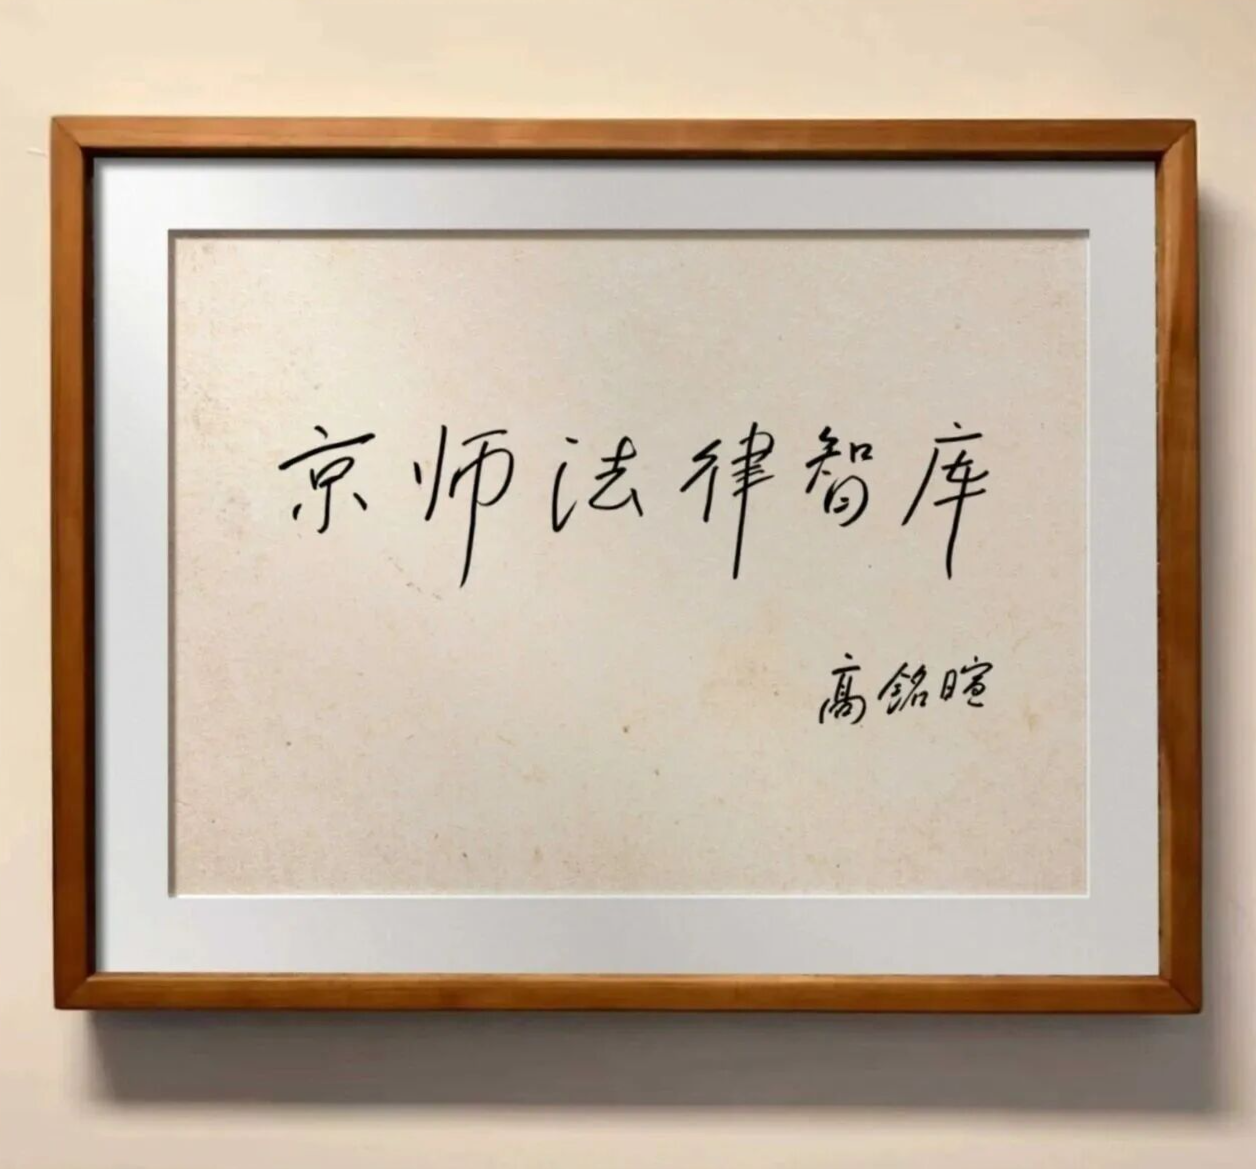 京师法律智库
高铭暄